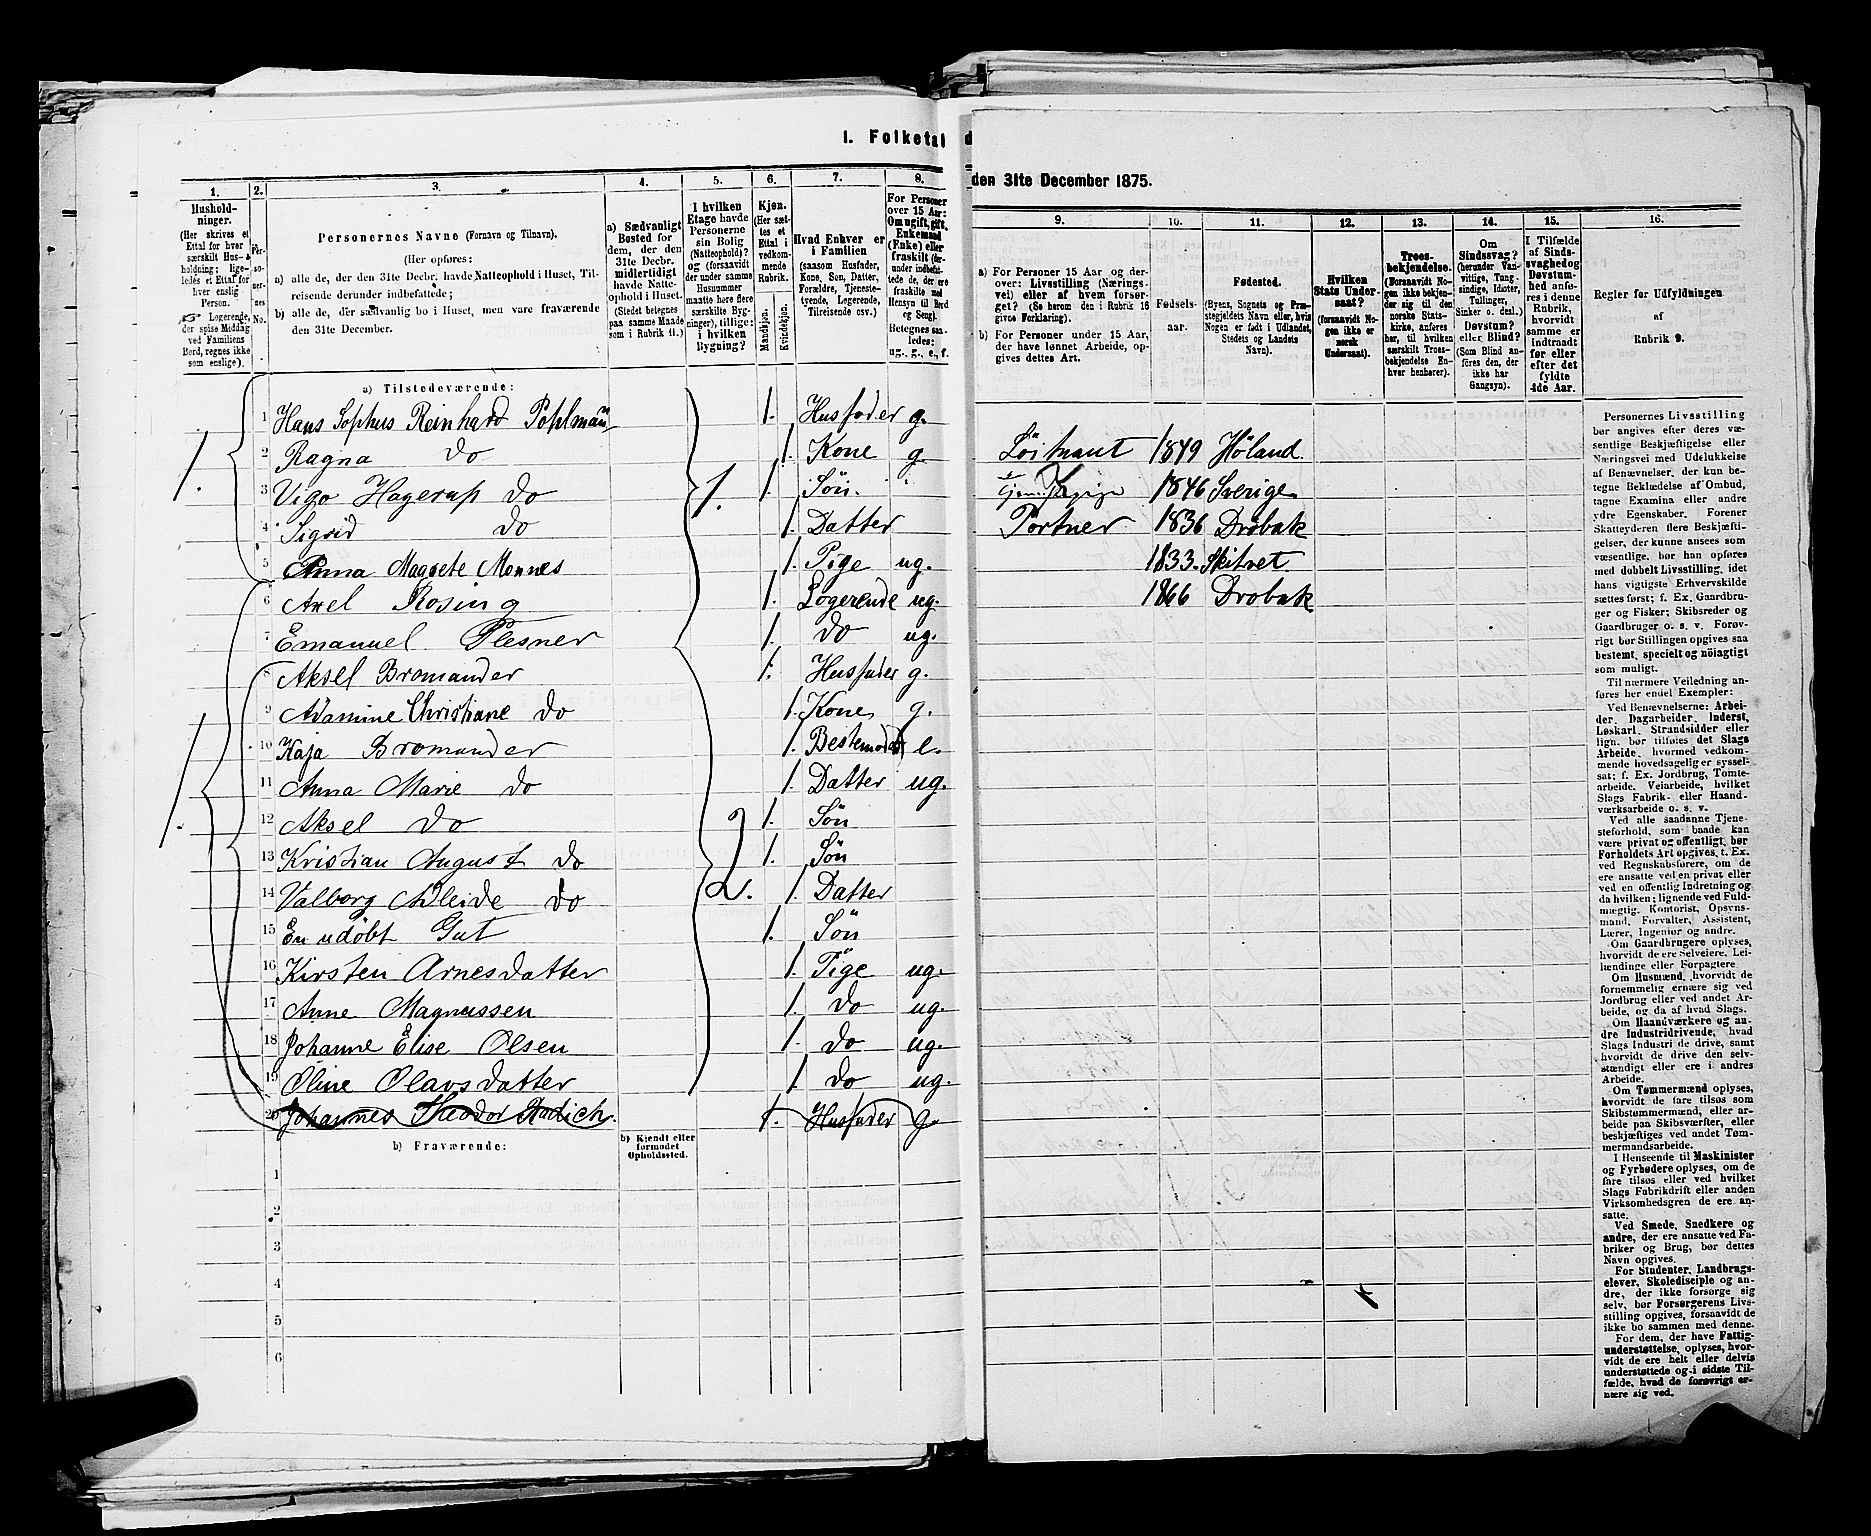 I. Folketal d
den 31te December 1875.
1. 2. 3. 4. 5. 6. 7. 8.
Hushold-
ninger.
(Her skrives et
Ettal for hver
særskilt Hus-
holdning; lige-
ledes et Ettal for
hver enslig
Person.
Logerende,
der spise Middag
ved Familiens
Bord, regnes ikke
som enslige).
Per-
so-
ner-
nes
No.
Personernes Navne (Fornavn og Tilnavn).
(Her opføres:
a) alle de, der den 31te Decbr. havde Natteophold i Huset, Til-
reisende derunder indbefattede;
b) alle de, der sædvanlig bo i Huset, men vare fraværende
den 31te December.
a) Sædvanligt
Bosted for
dem, der den
31te Decbr.
midlertidigt
havde Natte-
ophold i Huset.
(Stedet betegnes
paa samme Maade
som i Rubrik 11.)
I hvilken
Etage havde
Personerne
sin Bolig
(Natteophold)?
og (forsaavidt
der under samme
Husnummer
maatte høre flere
særskilte Byg-
ninger), tillige:
i hvilken
Bygning?
Kjøn.
(Her sæt-
tes et
Ettal i
vedkom-
mende
Rubrik.
Mandkjøn.
Kvindekjøn.
Hvad Enhver er
i Familien
(saasom Husfader,
Kone, Søn, Datter,
Forældre, Tjeneste-
tyende, Logerende,
Tilreisende osv.)
For Personer
over 15 Aar:
Om ugift, gift,
Enkemand
(Enke) eller
fraskilt
Betegnes saa-
ledes:
ug., g., e., f.
a) Tilstedeværende:
1 Hans Sophus Reinhard Pohlman 1. Husfader g.
2 Ragna do 1. Kone g.
3 Vigo Hagerup do 1. Søn.
4 Sigrid do 1. Datter
5 Anna Magrete Monnes 1. Pige ug.
6 Axel Rosing 1. Logerende ug.
7 Emanuel Plesner 1. do ug.
8 Aksel Bromander 1. Husfader g.
9 Adamine Christiane do 1. Kone g.
10 Kaja Bromander 1. Bestemoder e.
11 Anna Marie do 1. Datter ug.
12 Aksel do 1. Søn
13 Kristian August do 1. Søn
14 Valborg Adleide do 2. 1. Datter
15 En udøbt Gut 1. Søn
16 Kirsten Arnesdatter 1. Pige ug.
17 Anne Magnussen 1. do ug.
18 Johanne Elise Olsen 1. do ug.
19 Oline Olavsdatter 1. do ug.
20 Johannes Theodor Radich. 1. Husfader g.
b) Fraværende:
b) Kjendt eller
formodet
Opholdssted.
1
2
3
4
5
6
9. 10. 11. 12. 13. 14. 15. 16.
a) For Personer 15 Aar og der-
over: Livsstilling (Nærings-
vei) eller af hvem forsør-
get? (Se herom den i Rubrik 16
givne Forklaring).
b) For Personer under 15 Aar,
der have lønnet Arbeide, op-
gives dettes Art.
Fødsels-
aar.
Fødested.
(Byens, Sognets og Præ-
stegjeldets Navn eller, hvis
Nogen er født i Udlandet,
Stedets og Landets
Navn).
Hvilken
Stats Under-
saat?
(forsaavidt No-
gen ikke er
norsk
Undersaat).
Troes-
bekjendelse.
(Forsaavidt No-
gen ikke bekjen-
der sig til den
norske Stats-
kirke, anføres
her, til hvilken
særskilt Troes-
bekjendelse En-
hver henhører).
Om
Sindssvag?
(herunder Van-
vittige, Tung-
sindige, Idioter,
Tullinger,
Sinker o. desl.)
Døvstum?
eller Blind?
(Som Blind an-
føres den, der
ikke har
Gangsyn).
I Tilfælde
af Sinds-
svaghed og
Døvstum-
hed anfø-
res i denne
Rubrik,
hvorvidt
samme er
indtraadt
før eller
efter det
fyldte
4de Aar.
Regler for Udfyldningen
af
Rubrik 9.
Løitnant 1849 Høland.
1846 Sverige
Portner 1836 Drøbak
1833. Skitvet
1866 Drøbak
Personernes Livsstilling
bør angives efter deres væ-
sentlige Beskjæftigelse eller
Næringsvei med Udelukkelse
af Benævnelser, der kun be-
tegne Beklædelse af Ombud,
tagne Examina eller andre
ydre Egenskaber. Forener
Skatteyderen flere Beskjæfti-
gelser, der kunne ansees som
væsentlige, bør han opføres
med dobbelt Livsstilling, idet
hans vigtigste Erhvervskilde
sættes først; f. Ex. Gaardbru-
ger og Fisker; Skibsreder og
Gaardbruger o. s. v. Forøv-
rigt bør Stillingen opgives saa
bestemt, specielt og nöiagtigt
som muligt.
Til nærmere Veiledning an-
føres her endel Exempler:
Ved Benævnelserne: Arbei-
der, Dagarbeider, Inderst,
Løskarl, Strandsidder eller
lign. bør tilføies det Slags
Arbeide, hvormed vedkom-
mende hovedsagelig er syssel-
sat; f. Ex. Jordbrug, Tomte-
arbeide, Veiarbeide, hvilket
Slags Fabrik- eller Haand-
værksarbeide o. s. v.
Ved alle saadanne Tjene-
steforhold, som baade kan
være privat og offentligt, bør
Forholdets Art opgives, t. Ex.
ved Regnskabsførere, om de
ere ansatte ved en privat eller
ved en offentlig Indretning og
da hvilken; lignende ved Fuld-
mægtig, Kontorist, Opsyns-
mand, Forvalter, Assistent,
Lærer, Ingeniør og andre.
Om Gaardbrugere oplyses,
hvorvidt de ere Selveiere, Lei-
lændinge eller Forpagtere.
Om Husmænd, hvorvidt de
fornemmelig ernære sig ved
Jordbrug eller ved andet Ar-
beide, og da af hvad Slags.
Om Haandværkere og an-
dre Industridrivende, hvad
Slags Industri de drive, samt
hvorvidt de drive den selv-
stændigt eller ere i andres
Arbeide.
Om Tømmermænd oplyses,
hvorvidt de fare tilsøs som
Skibstømmermænd, eller ar-
beide paa Skibsværfter, eller
beskjæftiges ved andet Tøm-
mermandsarbeide.
I Henseende til Maskinister
og Fyrbødere oplyses, om de
fare tilsøs eller ved hvilket
Slags Fabrikdrift eller anden
Virksomhedsgren de ere an-
satte.
Ved Smede, Snedkere og
andre, der ere ansatte ved Fa-
briker og Brug, bør dettes
Navn opgives.
For Studenter, Landbrugs-
elever, Skoledisciple og an-
dre, der ikke forsørge sig
selv, bør Forsørgerens Livs-
stilling opgives, forsaavidt de
ikke bo sammen med denne.
For dem, der have Fattig-
understøttelse, oplyses, hvor-
vidt de ere helt eller delvis
understøttede og i sidste Til-
fælde, hvad de forøvrigt er-
nære sig ved.